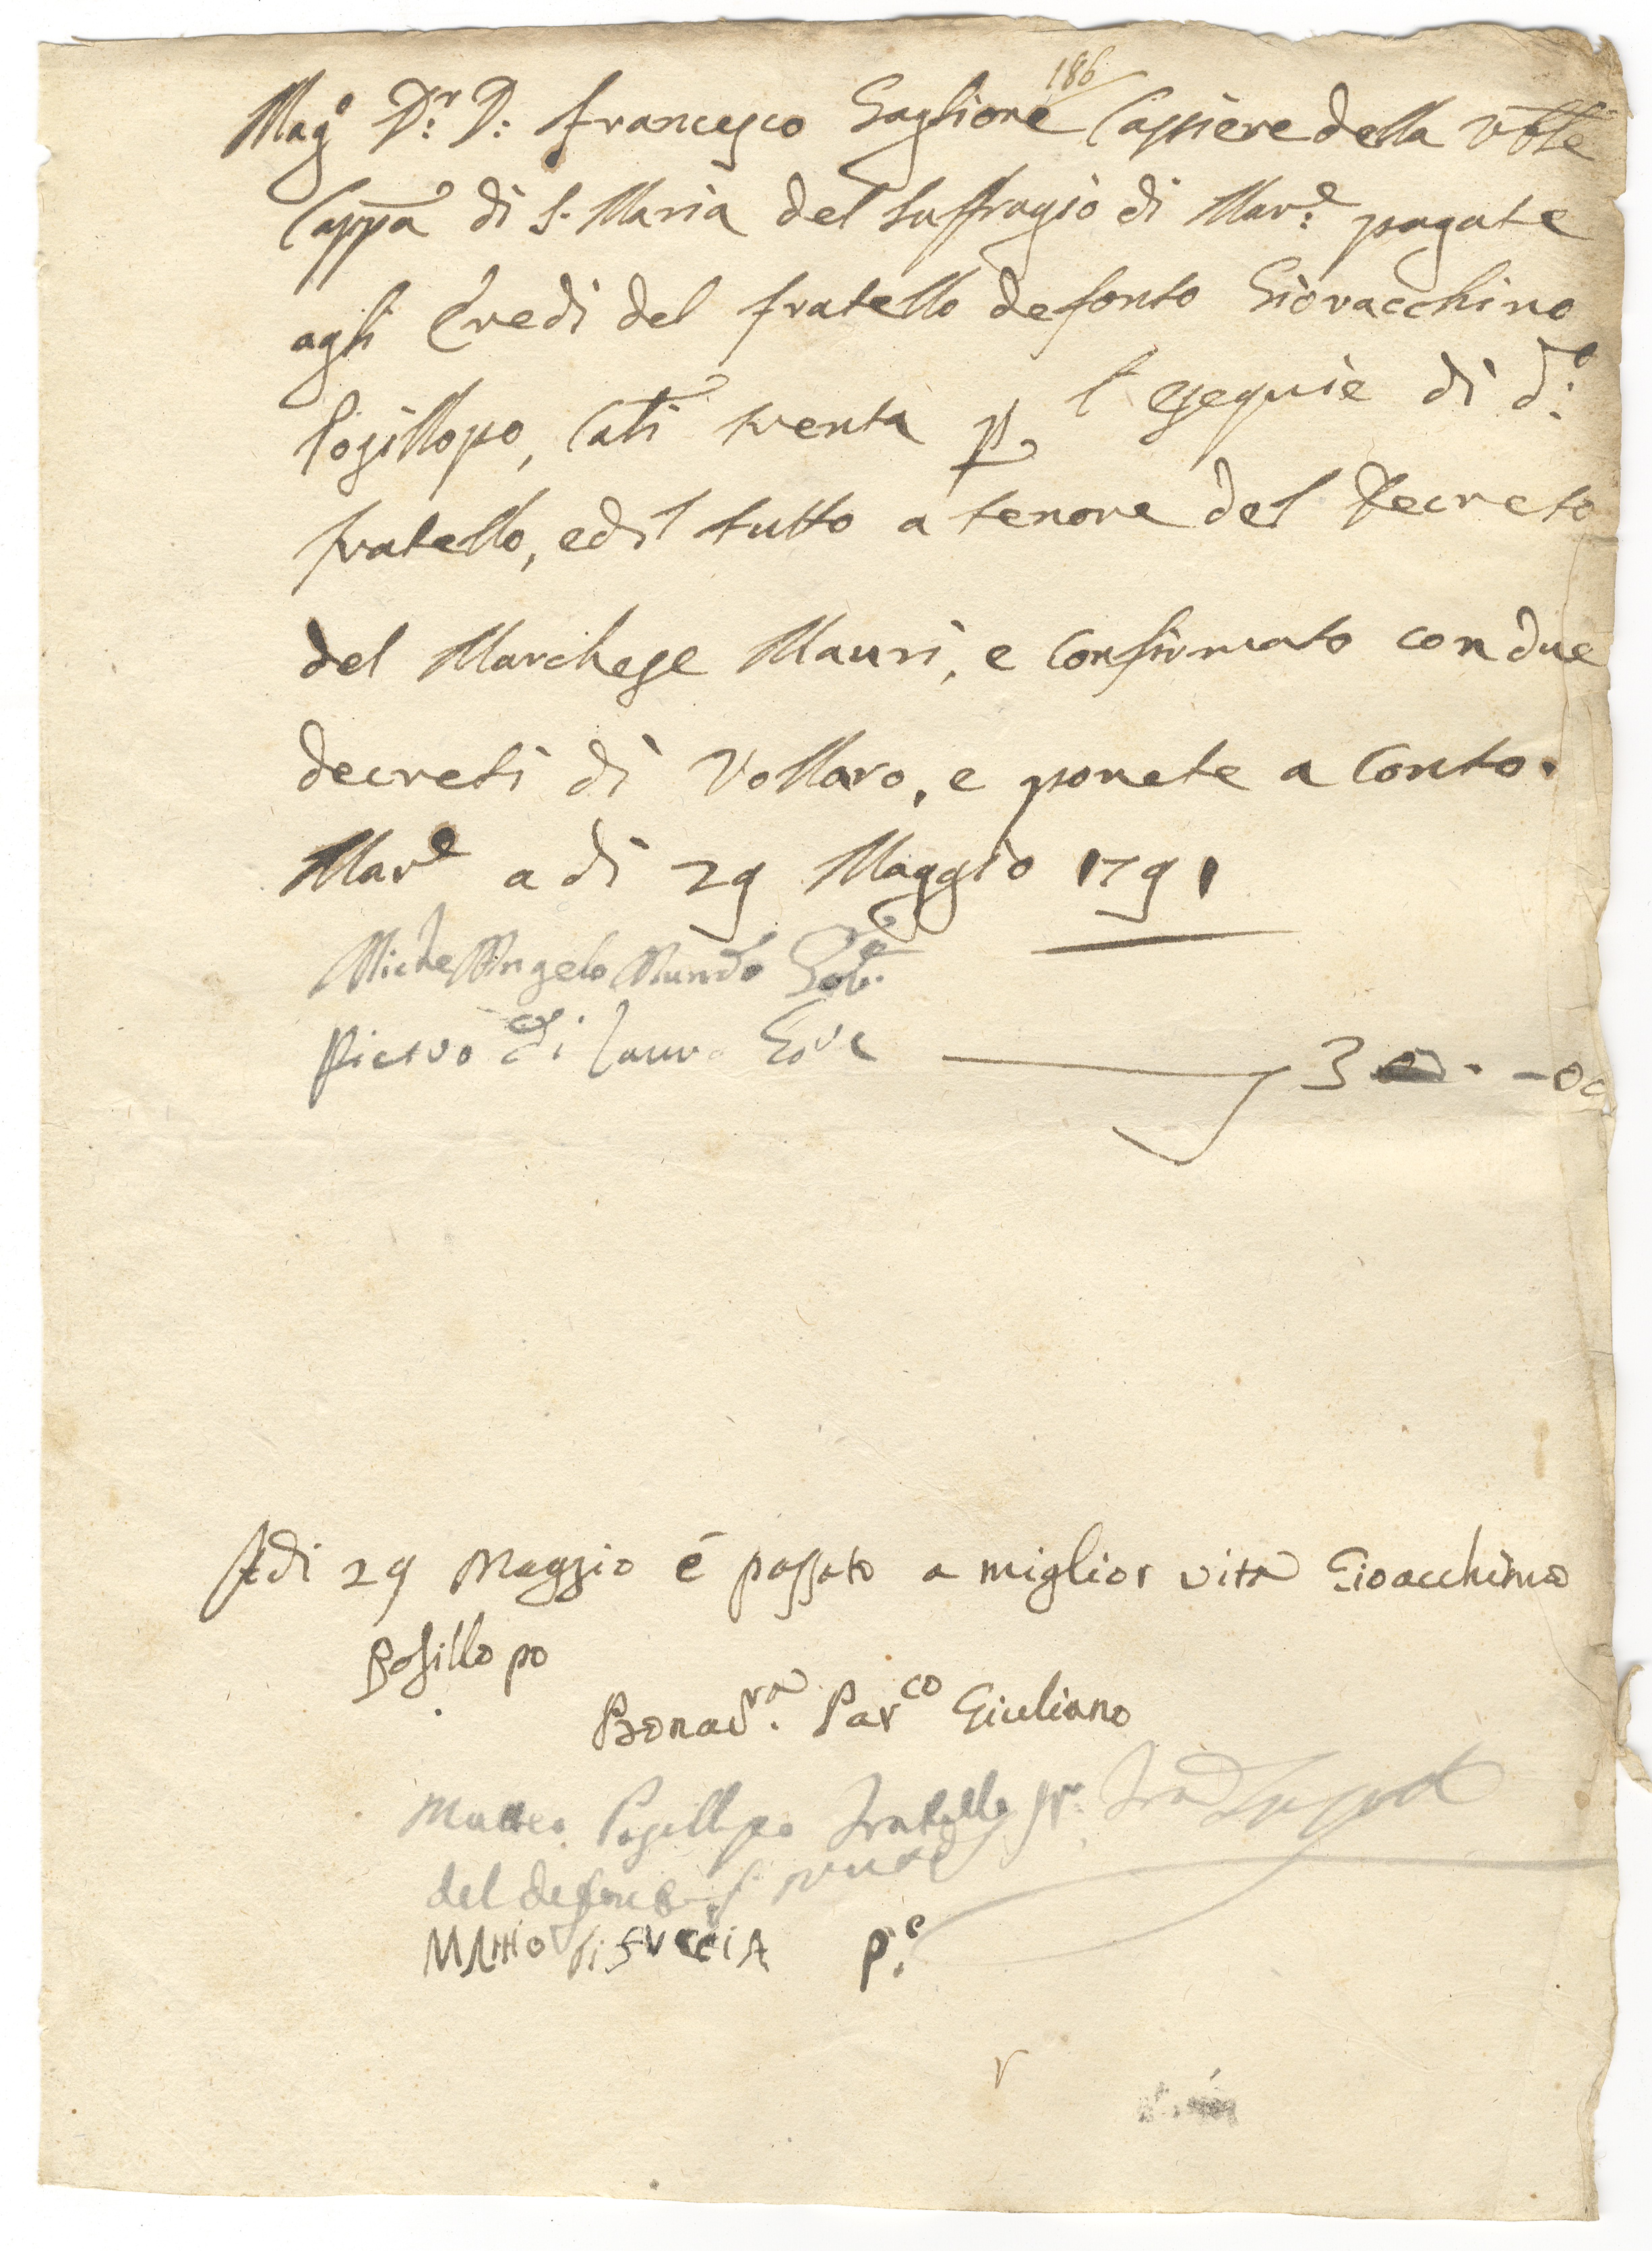 186
Mag.o D.r D: Francesco Gaglione Cassiere della Ve
Cappa di S. Maria del Suffragio di Mar.e pagate
agli Eredi del fratello defonto Giovacchino
Posillopo, Cati trenta p l'esequie di d.o
fratello, ed il tutto a tenore del Decreto
del Marchese Mauri, e confirmato con due
decreti di Vollaro, e ponete a Conto.
Mar.e a di 29 Maggio 1791
MichelAngelo Mundo Gov.e
Pietro di Lauro Gov.e
3 - 00
Adi 29 Maggio é passato a miglior vita Gioacchimo
Posillopo
Bonav.ra Par.co Giuliano
Matteo Posillipo Fratello
del defonto
MATTIO di FUCCIA P.e